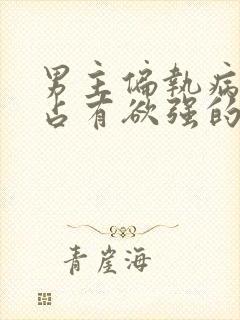 男主偏执病
占有欲强的
青崖海